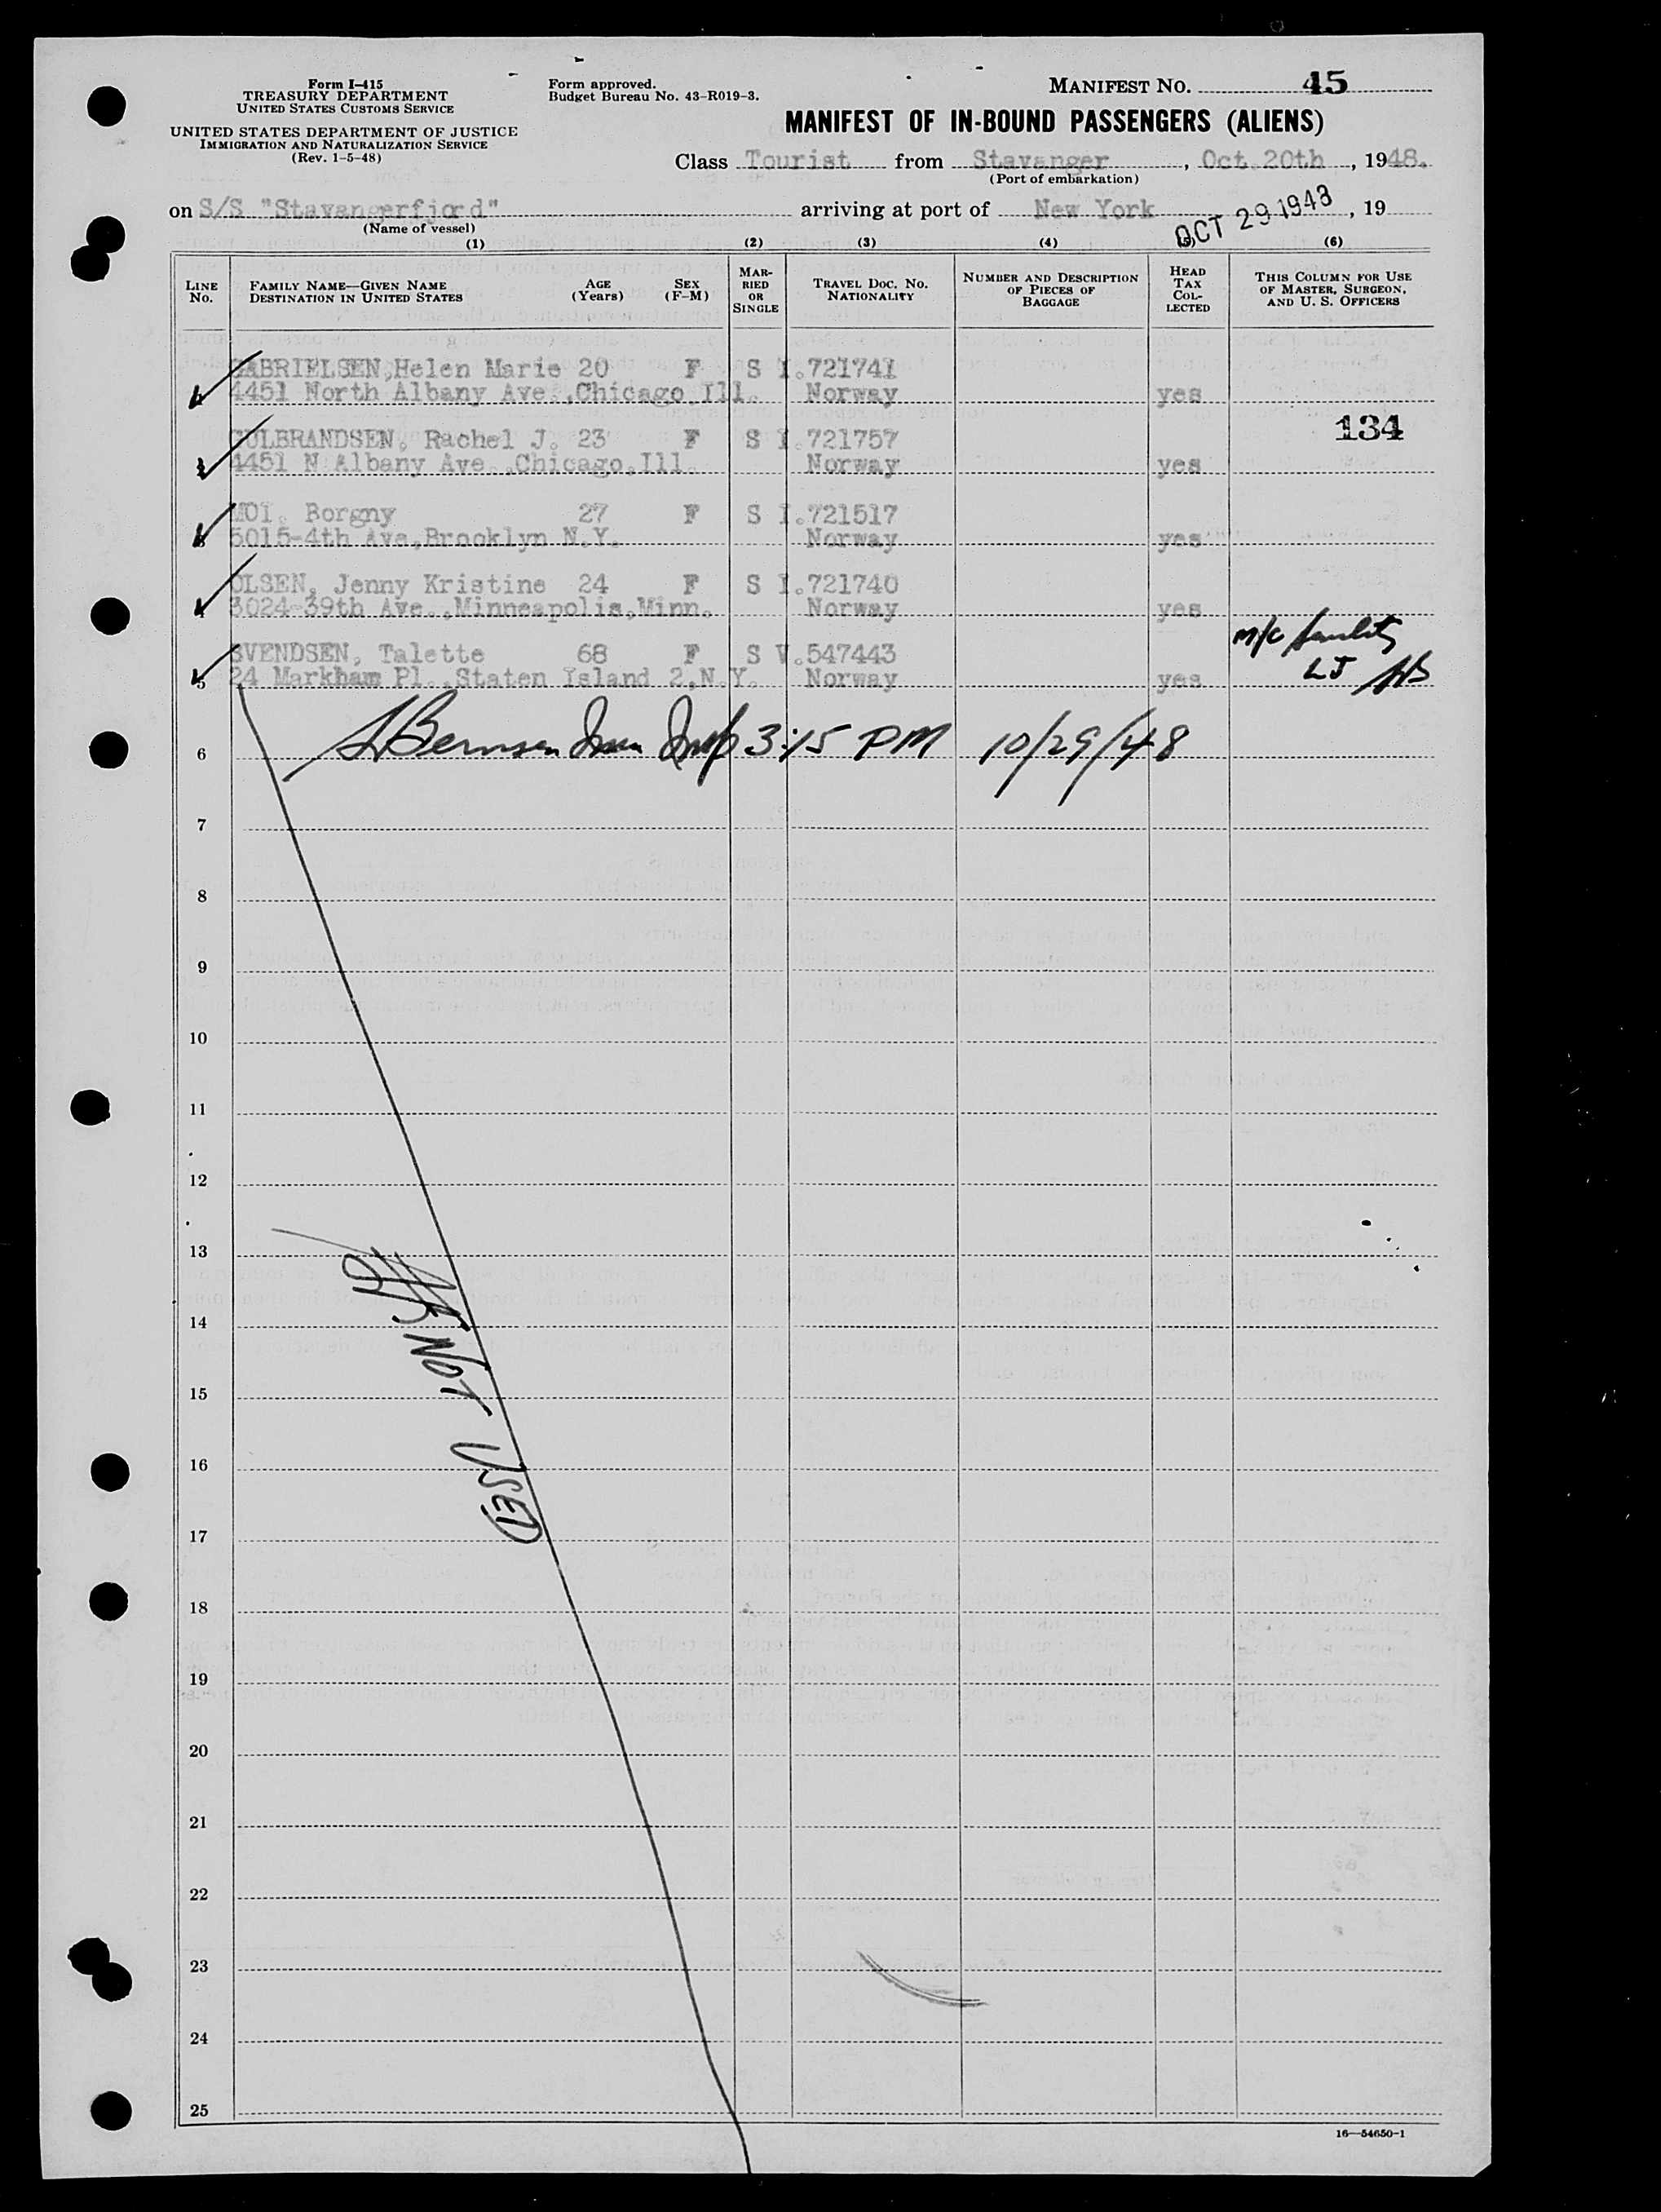 Form I-415
TREASURY DEPARTMENT
UNITED STATES CUSTOMS SERVICE
UNITED STATES DEPARTMENT OF JUSTICE
IMMIGRATION AND NATURALIZATION SERVICE
(Rev. 1-5-48)
Form approved.
Budget Bureau No. 43-R019-3.
MANIFEST NO. 45
MANIFEST OF IN-BOUND PASSENGERS (ALIENS)
Class Tourist from Stavanger, Oct.20th, 1948.
(Port of embarkation)
on S/S "Stavangerfjord" arriving at port of New York OCT 29 1948, 19
(Name of vessel)
(1) (2) (3) (4) (5) (6)
LINE No. FAMILY NAME—GIVEN NAME DESTINATION IN UNITED STATES AGE (Years) SEX (F-M) MARRIED OR SINGLE TRAVEL DOC. NO. NATIONALITY NUMBER AND DESCRIPTION OF PIECES OF BAGGAGE HEAD TAX COLLECTED THIS COLUMN FOR USE OF MASTER, SURGEON, AND U. S. OFFICERS
GABRIELSEN,Helen Marie 20 F S I.721741
4451 North Albany Ave.,Chicago,Ill. Norway yes
134
GULBRANDSEN, Rachel J. 23 F S I.721757
4451 N Albany Ave.,Chicago,Ill. Norway yes
MOI, Borgny 27 F S I.721517
5015-4th Ave,Brooklyn N.Y. Norway yes
OLSEN, Jenny Kristine 24 F S I.721740
4 3024-39th Ave.,Minneapolis,Minn. Norway yes
SVENDSEN, Talette 68 F S V.547443
5 24 Markham Pl.,Staten Island 2,N.Y. Norway yes
m/c
LJ
6 3:15 PM 10/29/48
7
8
9
10
11
12
13
14
15
16
17
18
19
20
21
22
23
24
25
NOT USED
16—54650-1